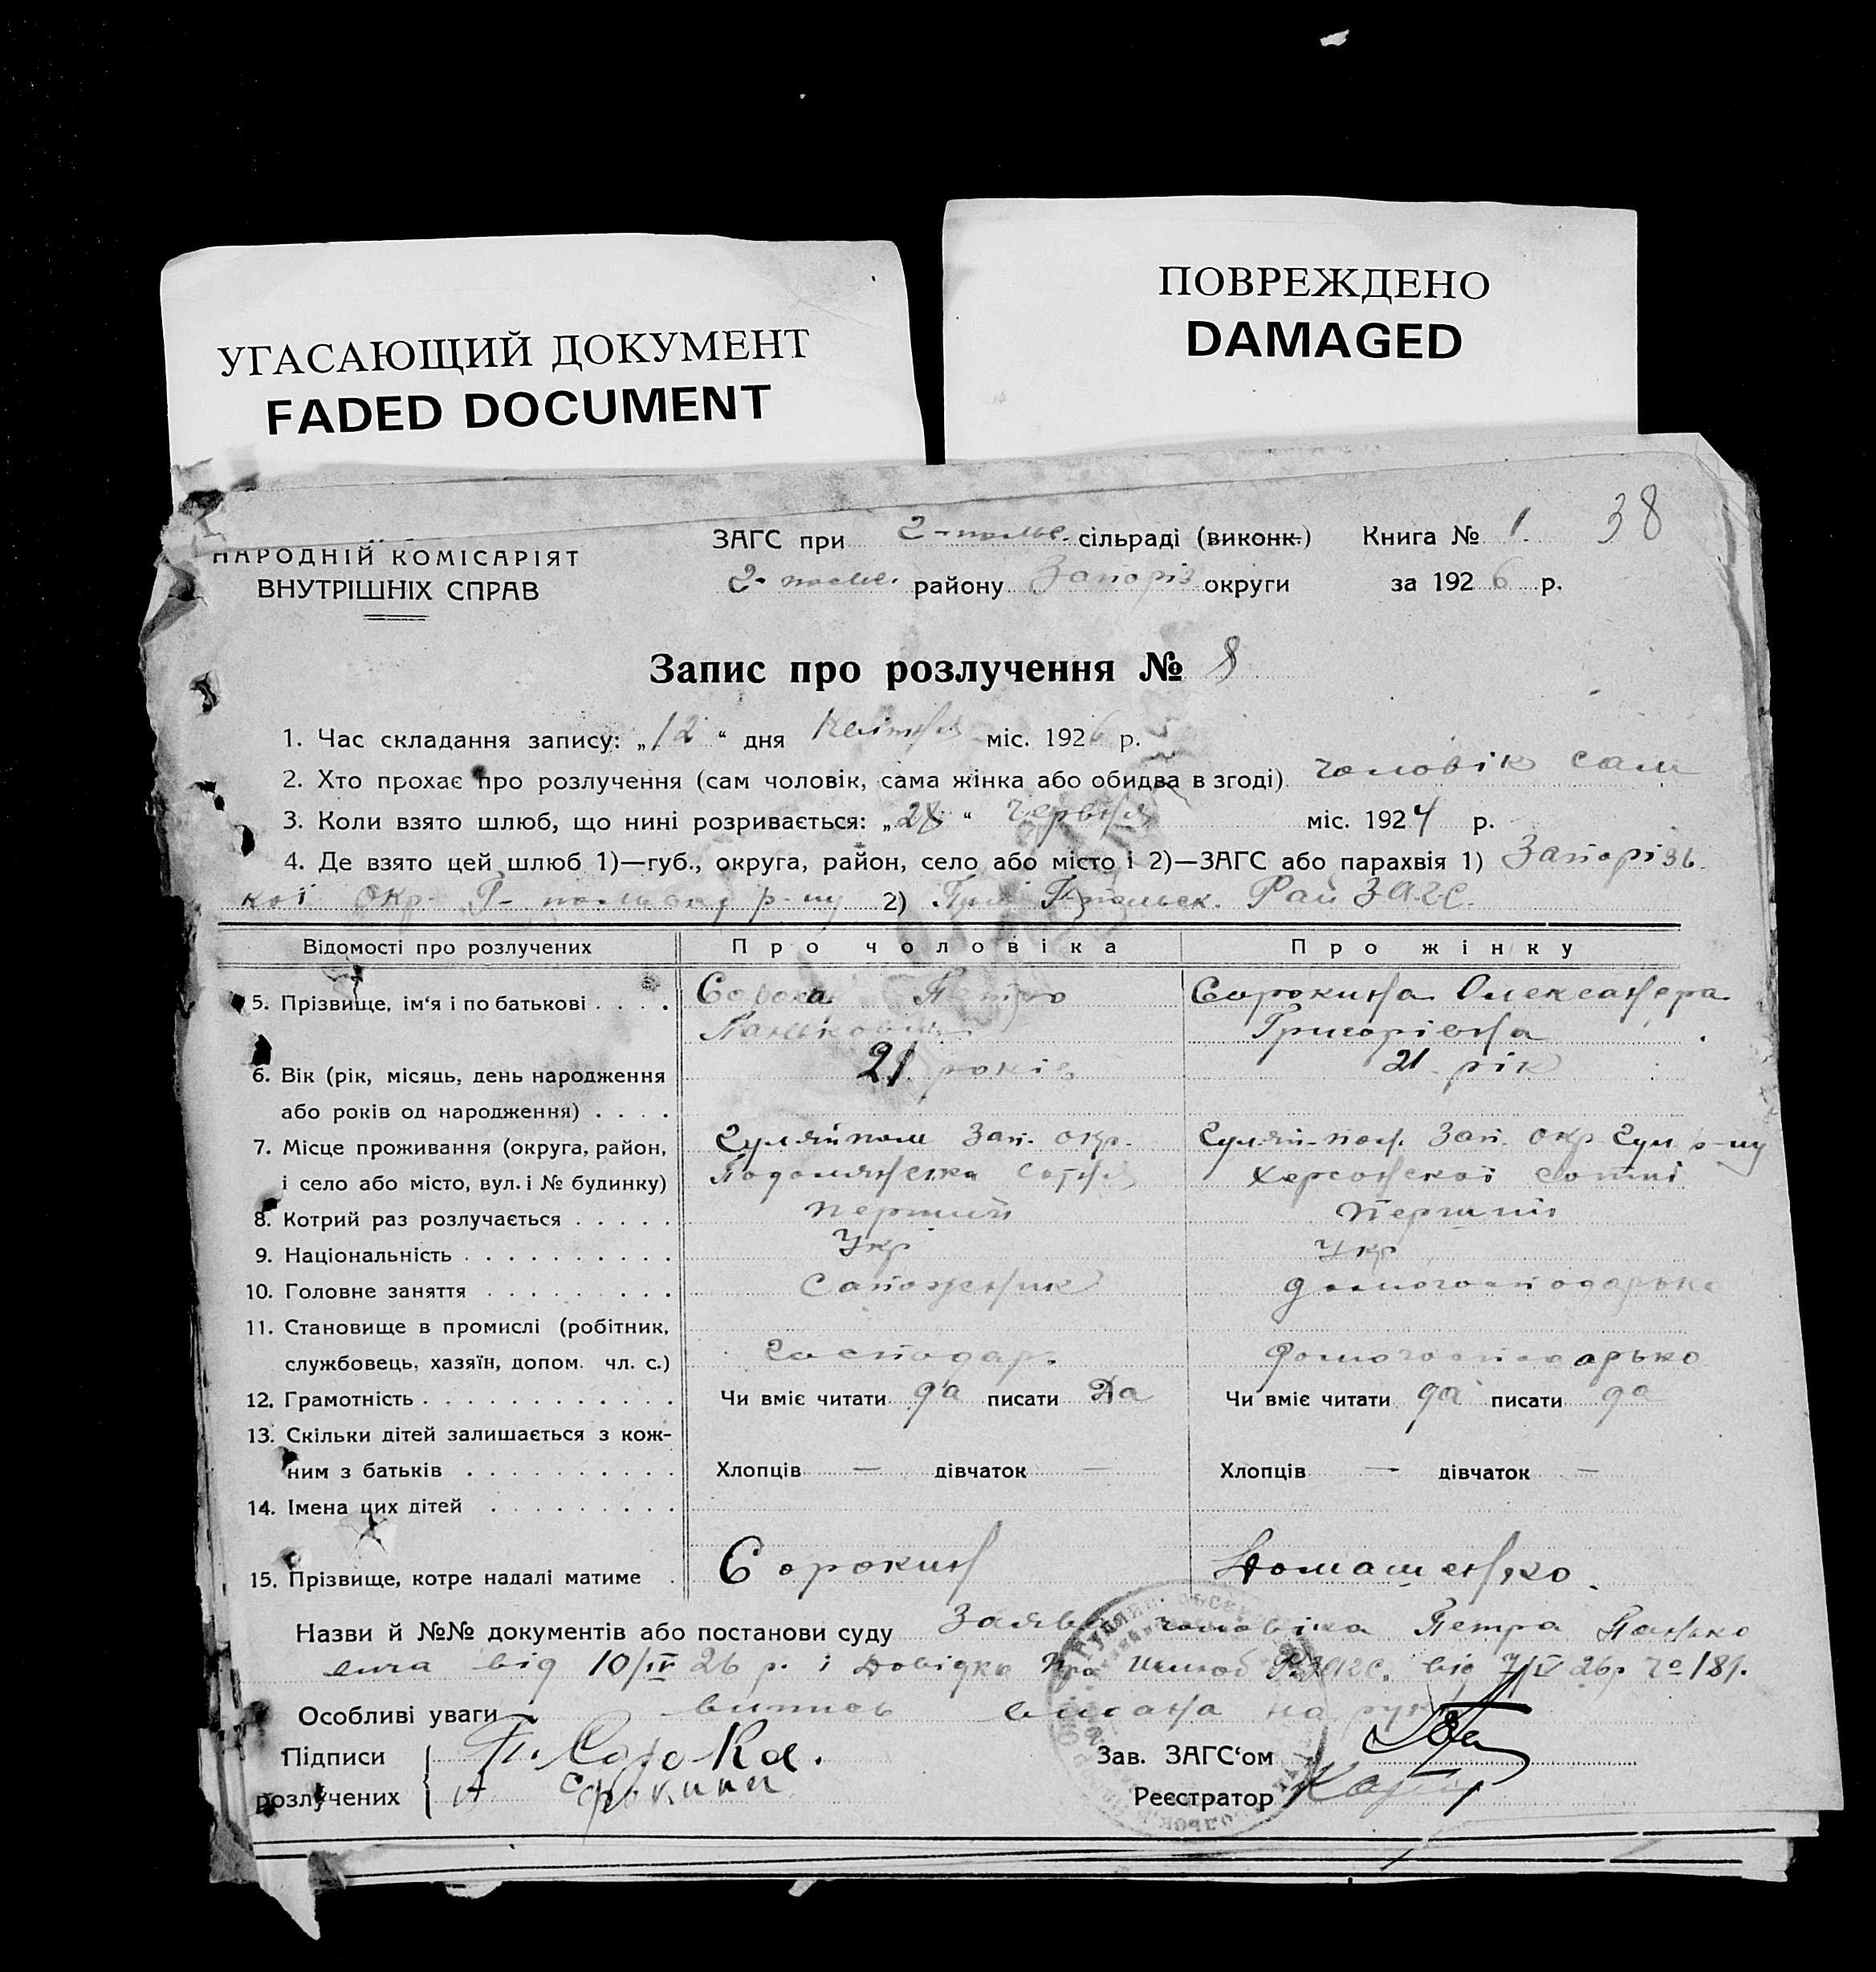 УГАСАЮЩИЙ ДОКУМЕНТ
FADED DOCUMENT
ПОВРЕЖДЕНО
DAMAGED
38
НАРОДНІЙ КОМІСАРІЯТ
ВНУТРІШНІХ СПРАВ
ЗАГС при Г-польс. сільраді (виконк.) Книга № 1.
Г-польс. району Запоріз округи за 1926 р.
Запис про розлучення № 8
1. Час складання запису: „12“ дня Квітня міс. 1926 р.
2. Хто прохає про розлучення (сам чоловік, сама жінка або обидва в згоді) чоловік сам
3. Коли взято шлюб, що нині розривається: „28“ червня міс. 1924 р.
4. Де взято цей шлюб 1)—губ., округа, район, село або місто і 2)—ЗАГС або парахвія 1) Запорізь
кої окр. Г- р-ну 2) Г-польск. Рай ЗАГС.
Відомості про розлучених Про чоловіка Про жінку
5. Прізвище, ім'я і по батькові Сорока Петро Сорокина Олександра
Панькович Григорівна
6. Вік (рік, місяць, день народження 21 років 21 рік
або років од народження)
7. Місце проживання (округа, район, Гуляйполе Зап. окр. Гуляй-пол. Зап. окр Гул. р-ну
і село або місто, вул. і № будинку) Подолянська сотня Херсонскої сотні
8. Котрий раз розлучається перший перший
9. Національність Укр Укр
10. Головне заняття Сапожник домогосподарька
11. Становище в промислі (робітник,
службовець, хазяїн, допом. чл. с.) Господар. домогосподарько
12. Грамотність Чи вміє читати да писати Да Чи вміє читати да писати да
13. Скільки дітей залишається з кож-
ним з батьків Хлопців — дівчаток — Хлопців — дівчаток —
14. Імена цих дітей
15. Прізвище, котре надалі матиме Сорокин Домашенко.
Назви й №№ документів або постанови суду Заява чоловіка Петра Панько
вича від 10/IV 26 р. і довідка про шлюб РЗАГС. від 7/IV 26р № 181.
Особливі уваги випись видана на руки
Підписи П. Сорока. Зав. ЗАГС'ом
розлучених А Сорокина Реєстратор